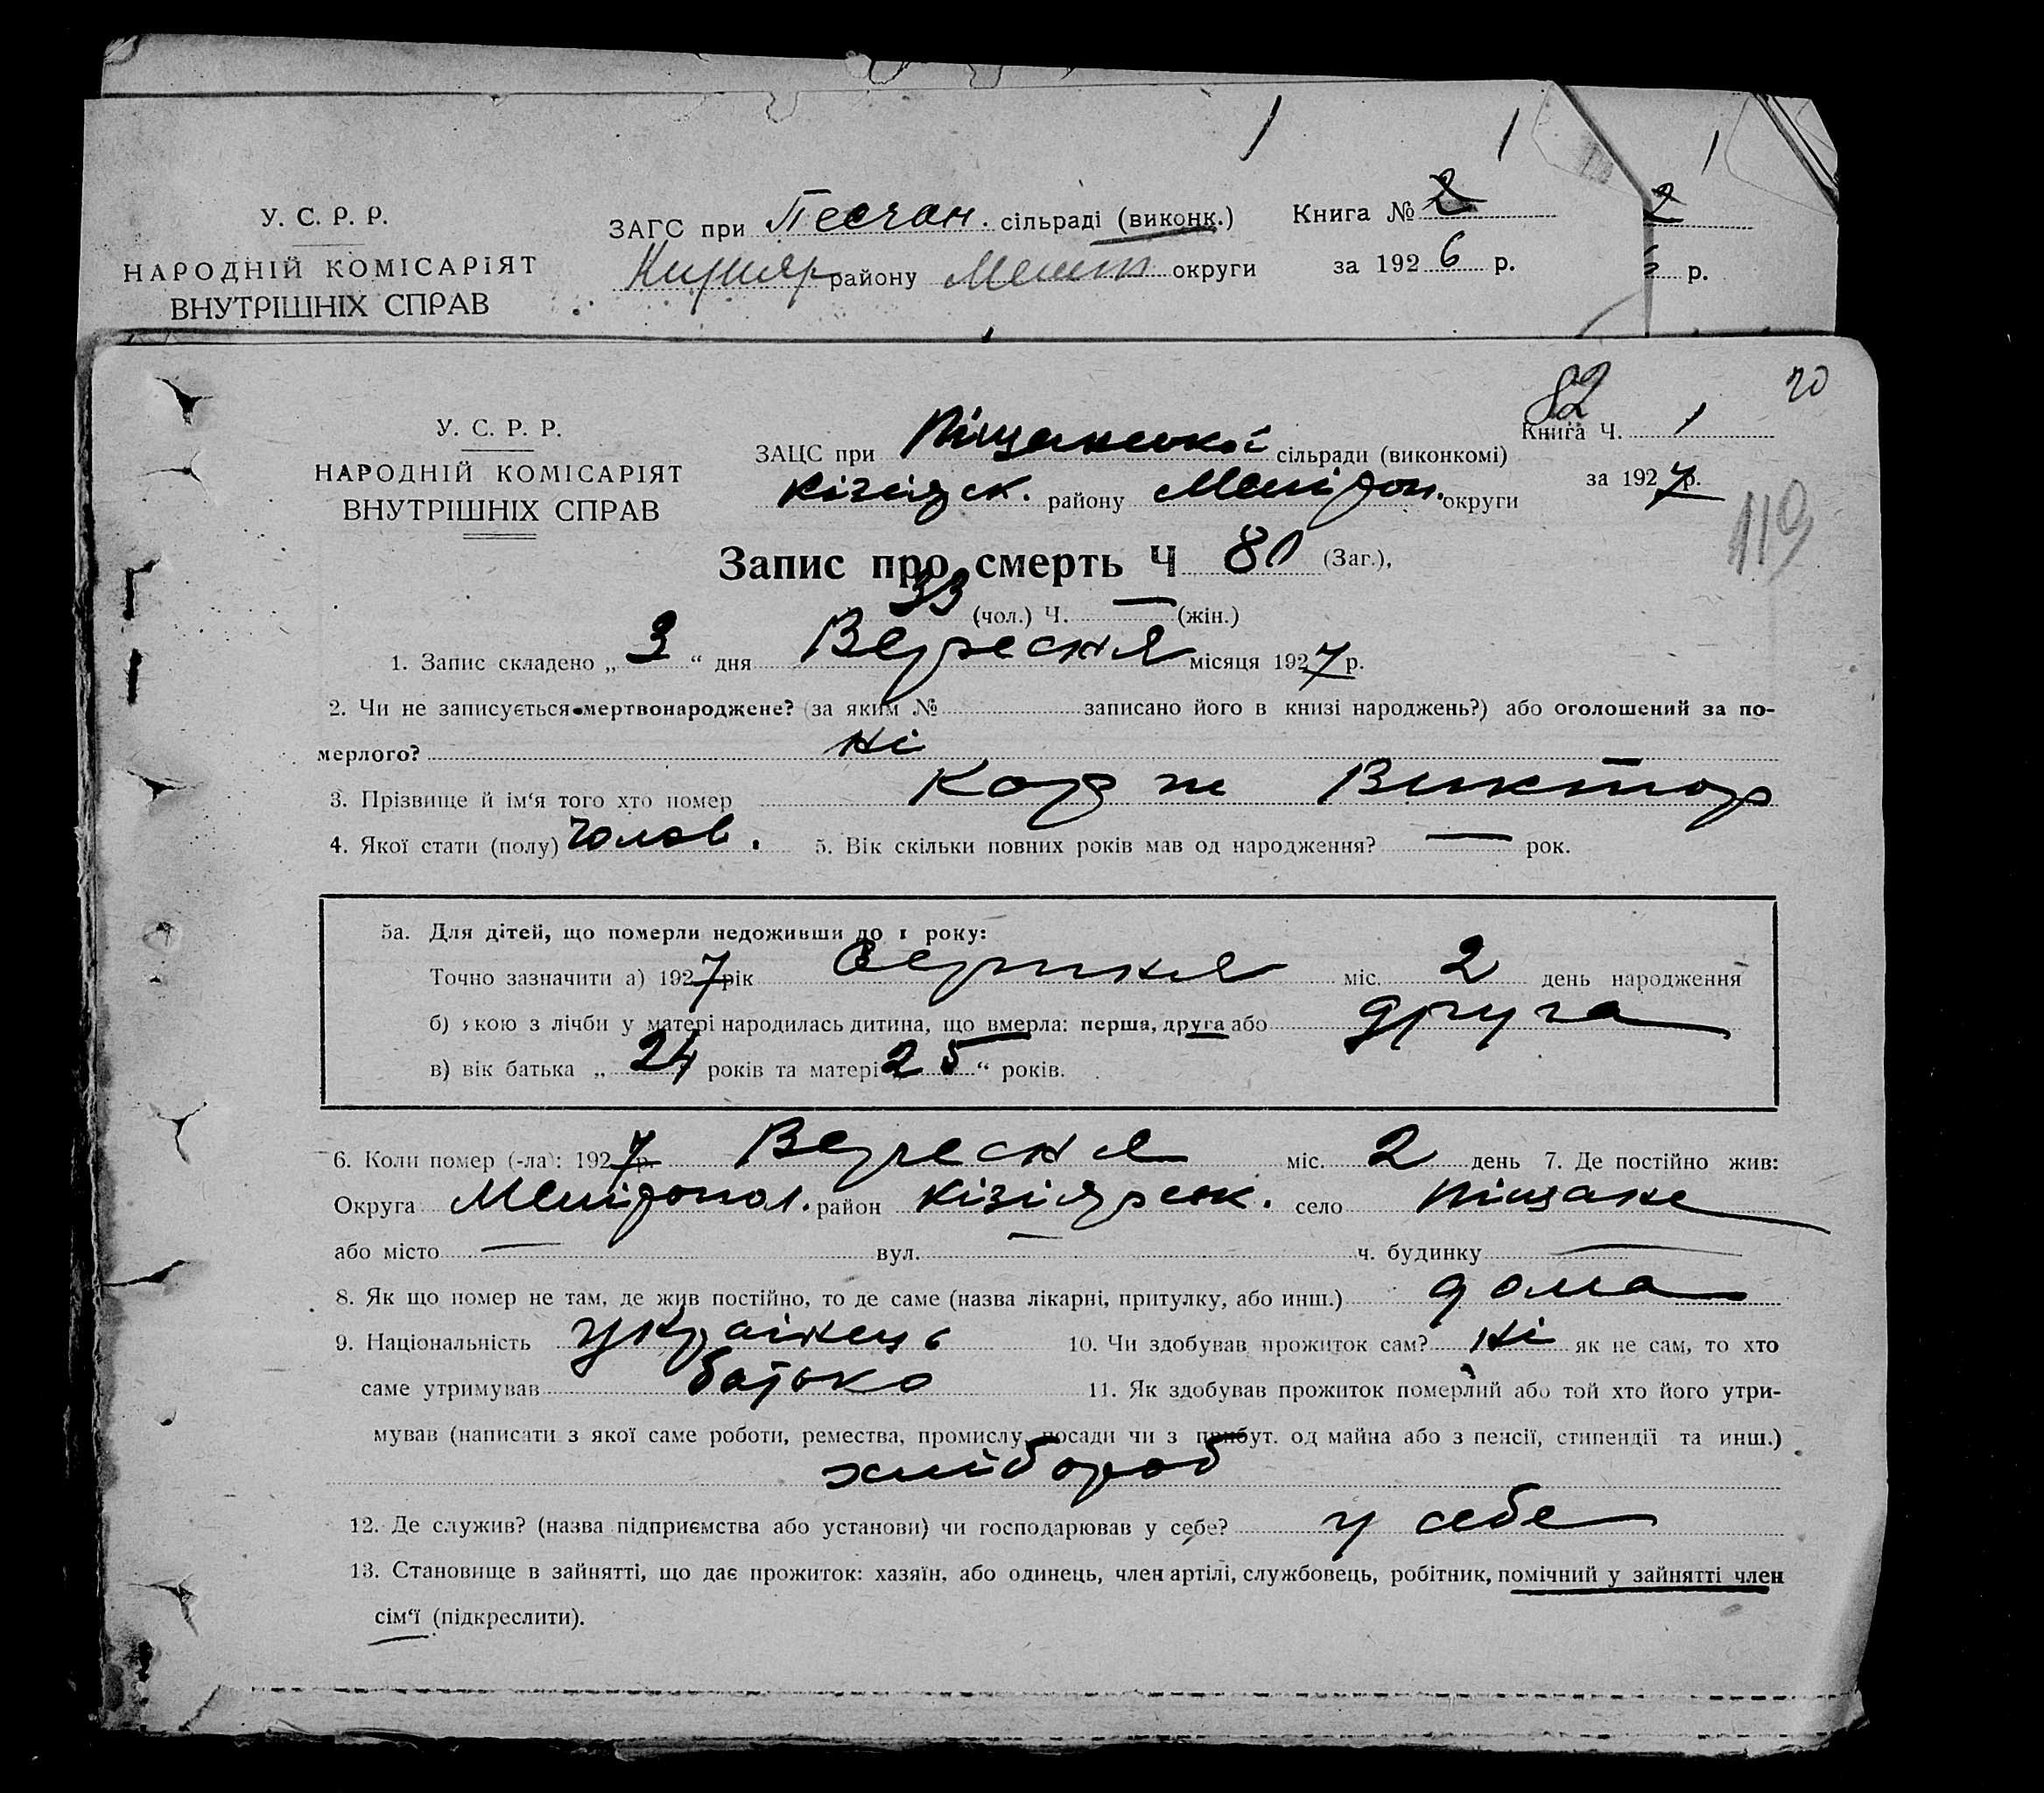 1 1 1
У. С. Р. Р.
НАРОДНІЙ КОМІСАРІЯТ
ВНУТРІШНІХ СПРАВ
ЗАГС при Песчан. сільраді (виконк.)
району Меліт округи
Книга № 2
за 1926 р.
2
р.
82
20
У. С. Р. Р.
НАРОДНІЙ КОМІСАРІЯТ
ВНУТРІШНІХ СПРАВ
ЗАЦС при Піщанської сільради (виконкомі)
Кізіярск. району Мелітоп. округи
Книга Ч. 1
за 1927 р.
119
Запис про смерть Ч 80 (Заг.),
33 (чол.) Ч. — (жін.)
1. Запис складено „ 3 “ дня Вересня місяця 1927 р.
2. Чи не записується мертвонароджене? (за яким № записано його в книзі народжень?) або оголошений за по-
мерлого? Ні
3. Прізвище й ім‘я того хто помер Корж Виктор
4. Якої стати (полу) чолов. 5. Вік скільки повних років мав од народження? — рок.
5а. Для дітей, що померли недоживши до 1 року:
Точно зазначити а) 1927 рік міс. 2 день народження
б) якою з лічби у матері народилась дитина, що вмерла: перша, друга або друга
в) вік батька „ 24 років та матері 25 “ років.
6. Коли помер (-ла): 1927 р. Вересня міс. 2 день 7. Де постійно жив:
Округа Мелітопол. район Кізіярськ. село Піщане
або місто — вул. — ч. будинку —
8. Як що помер не там, де жив постійно, то де саме (назва лікарні, притулку, або инш.) дома
9. Національність українець 10. Чи здобував прожиток сам? Ні як не сам, то хто
саме утримував батько 11. Як здобував прожиток померлий або той хто його утри-
мував (написати з якої саме роботи, ремества, промислу, посади чи з прибут. од майна або з пенсії, стипендії та инш.)
хлібороб
12. Де служив? (назва підприємства або установи) чи господарював у себе? у себе
13. Становище в зайнятті, що дає прожиток: хазяїн, або одинець, член артілі, службовець, робітник, помічний у зайнятті член
сім‘ї (підкреслити).